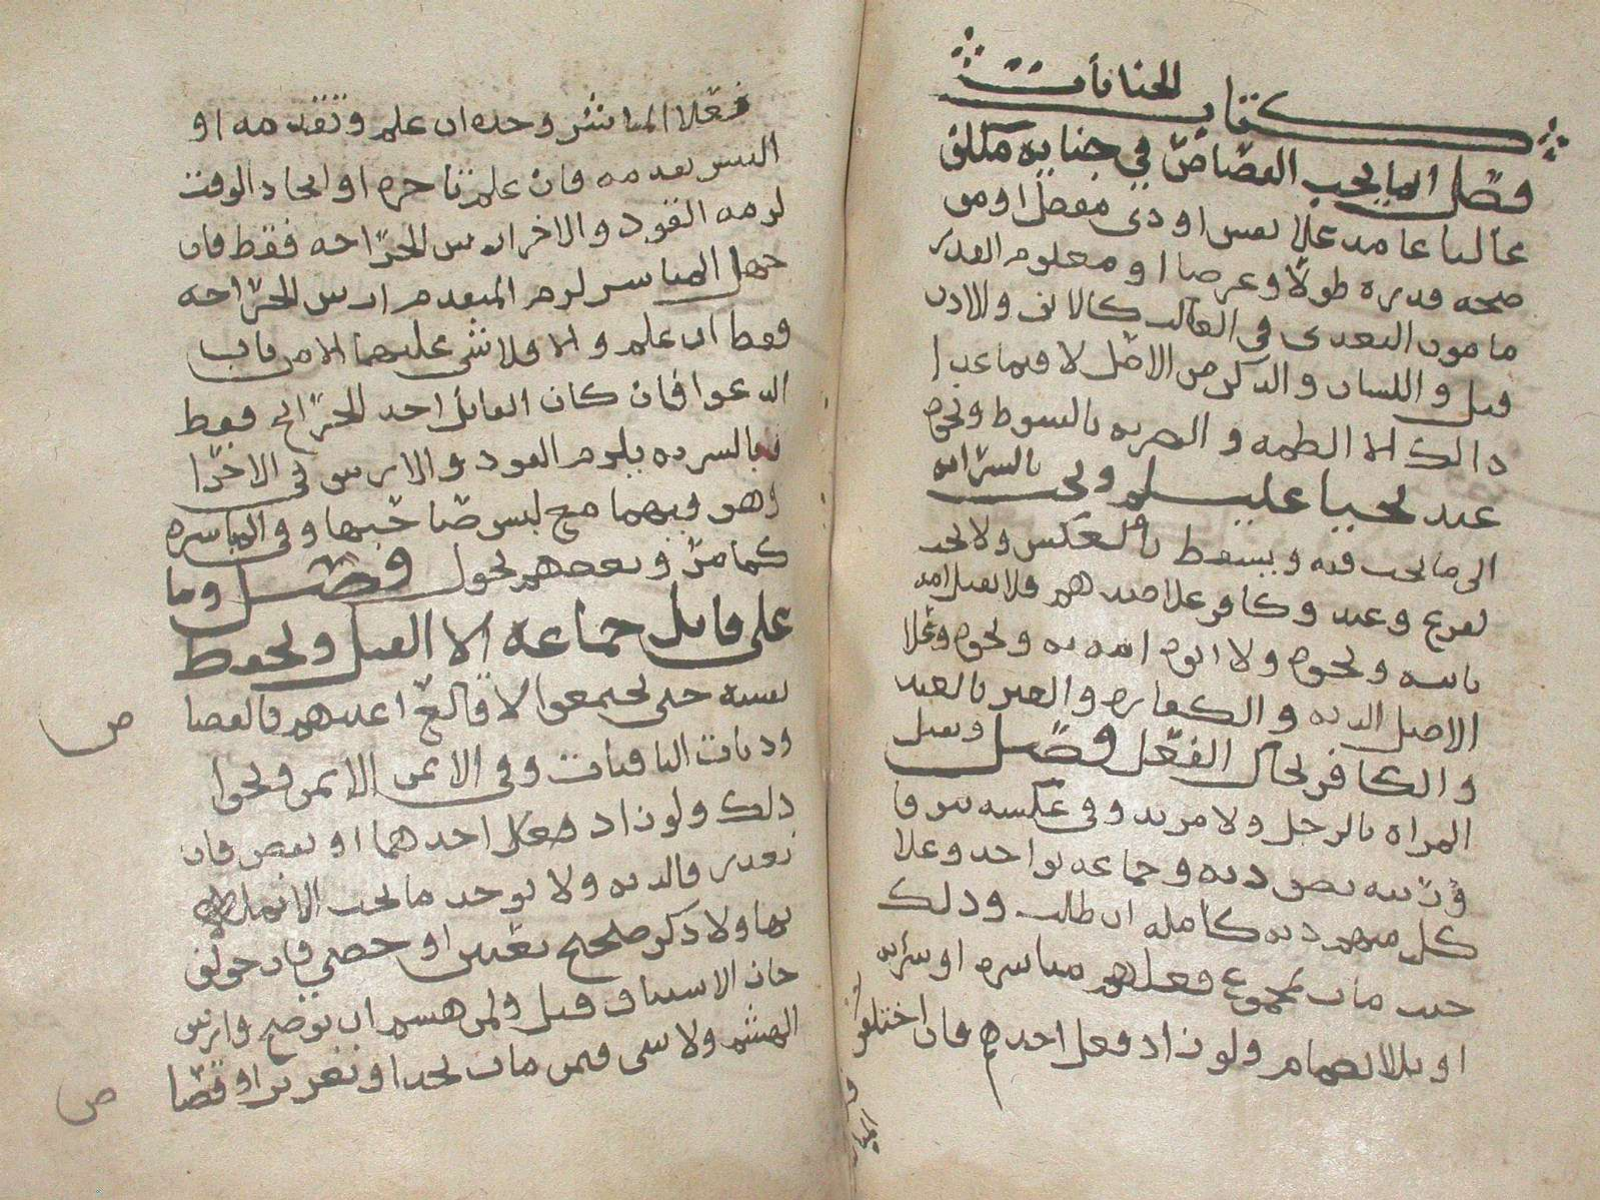 كتاب الجنايات
فصل انما يجب القصاص في جناية مكلف
غالبا عامد على نفس او ذي مفصل او مو
ضحه قدره طولا وعرضا او معلوم القدر
مامون التعدي في الغالب كالانف والاذن
قيل واللسان والذكر من الاصل لا فيما عدا
ذالك الا الطمه والضربه بالسوط ونحوه
عند يحيا عليلم ويجب بالسرايه
الى ما يجب فيه ويسقط بالعكس ولا يجب
لفرع وعبد وكافر علا ضدهم فلا يقتل امه
بابنه ونحوه ولا ابوه امه به ونحوه وعلا
الاصل الديه والكفاره والعبر بالعبد
والكافر بحال الفعل فصل ويقتل
المراه بالرجل ولا مزيد وفي عكسه يتوفا
ورثته نصف ديه وجماعه بواحد وعلا
كل منهم ديه كامله ان طلبت وذلك
حيث مات بمجموع فعلهم مباشره او سرايه
او بالانضمام ولو زاد فعل احدهم فان اختلفوا
فعلا المباشر وحده ان علم وتقدمه او
التبس تقدمه فان علم تاخره او اتحاد الوقت
لزمه القود والاخر ارش الجراحه فقط فان
جهل المباشر لزم المتقدم ارش الجراحه
فقط ان علم والا فلا شي عليهما الا من باب
الدعوا فان كان القاتل احد الجرايح فقط
فبالسرايه يلزم القود والارش في الاخرا
وهو فيهما مع لبس صاحبها وفي المباشره
كما مر وبعضهم يحول فصل وما
على قاتل جماعه الا القتل ويحفظ
نفسه حتى يجتمعوا لا قالع اعينهم فالقصا
ص
وديات الباقيات وفي الايمن الايمن ونحوا
ذلك ولو زاد فعل احدهما او نقص فان
تعذر فالديه ولا يوخذ ما تحت الانمله
بها ولا ذكر صحيح بعنين او خصي فان خولف
جاز الاستيناف قيل ولمن هشم ان يوضح وارش
الهشم ولا شي فيمن مات بحد او تعزير او قصا
ص